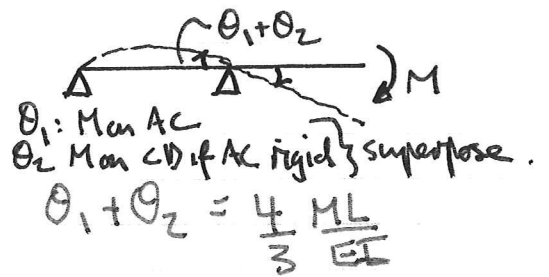 θ₁+θ₂
M
θ₁: M on AC
θ₂ M on CD if AC rigid } superpose.
θ₁ + θ₂ = 4/3 ML/EI